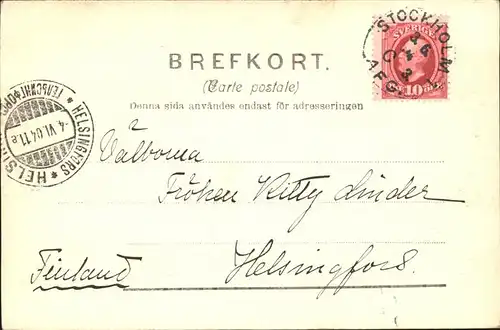 BREFKORT.
(Carte postale)
Denna sida användes endast för adresseringen
SVERIGE
10
STOCKHOLM
HELSINGFORS
4.VI.04.11.e
Välborna
Fröken Kitty Linder
Helsingfors.
Finland